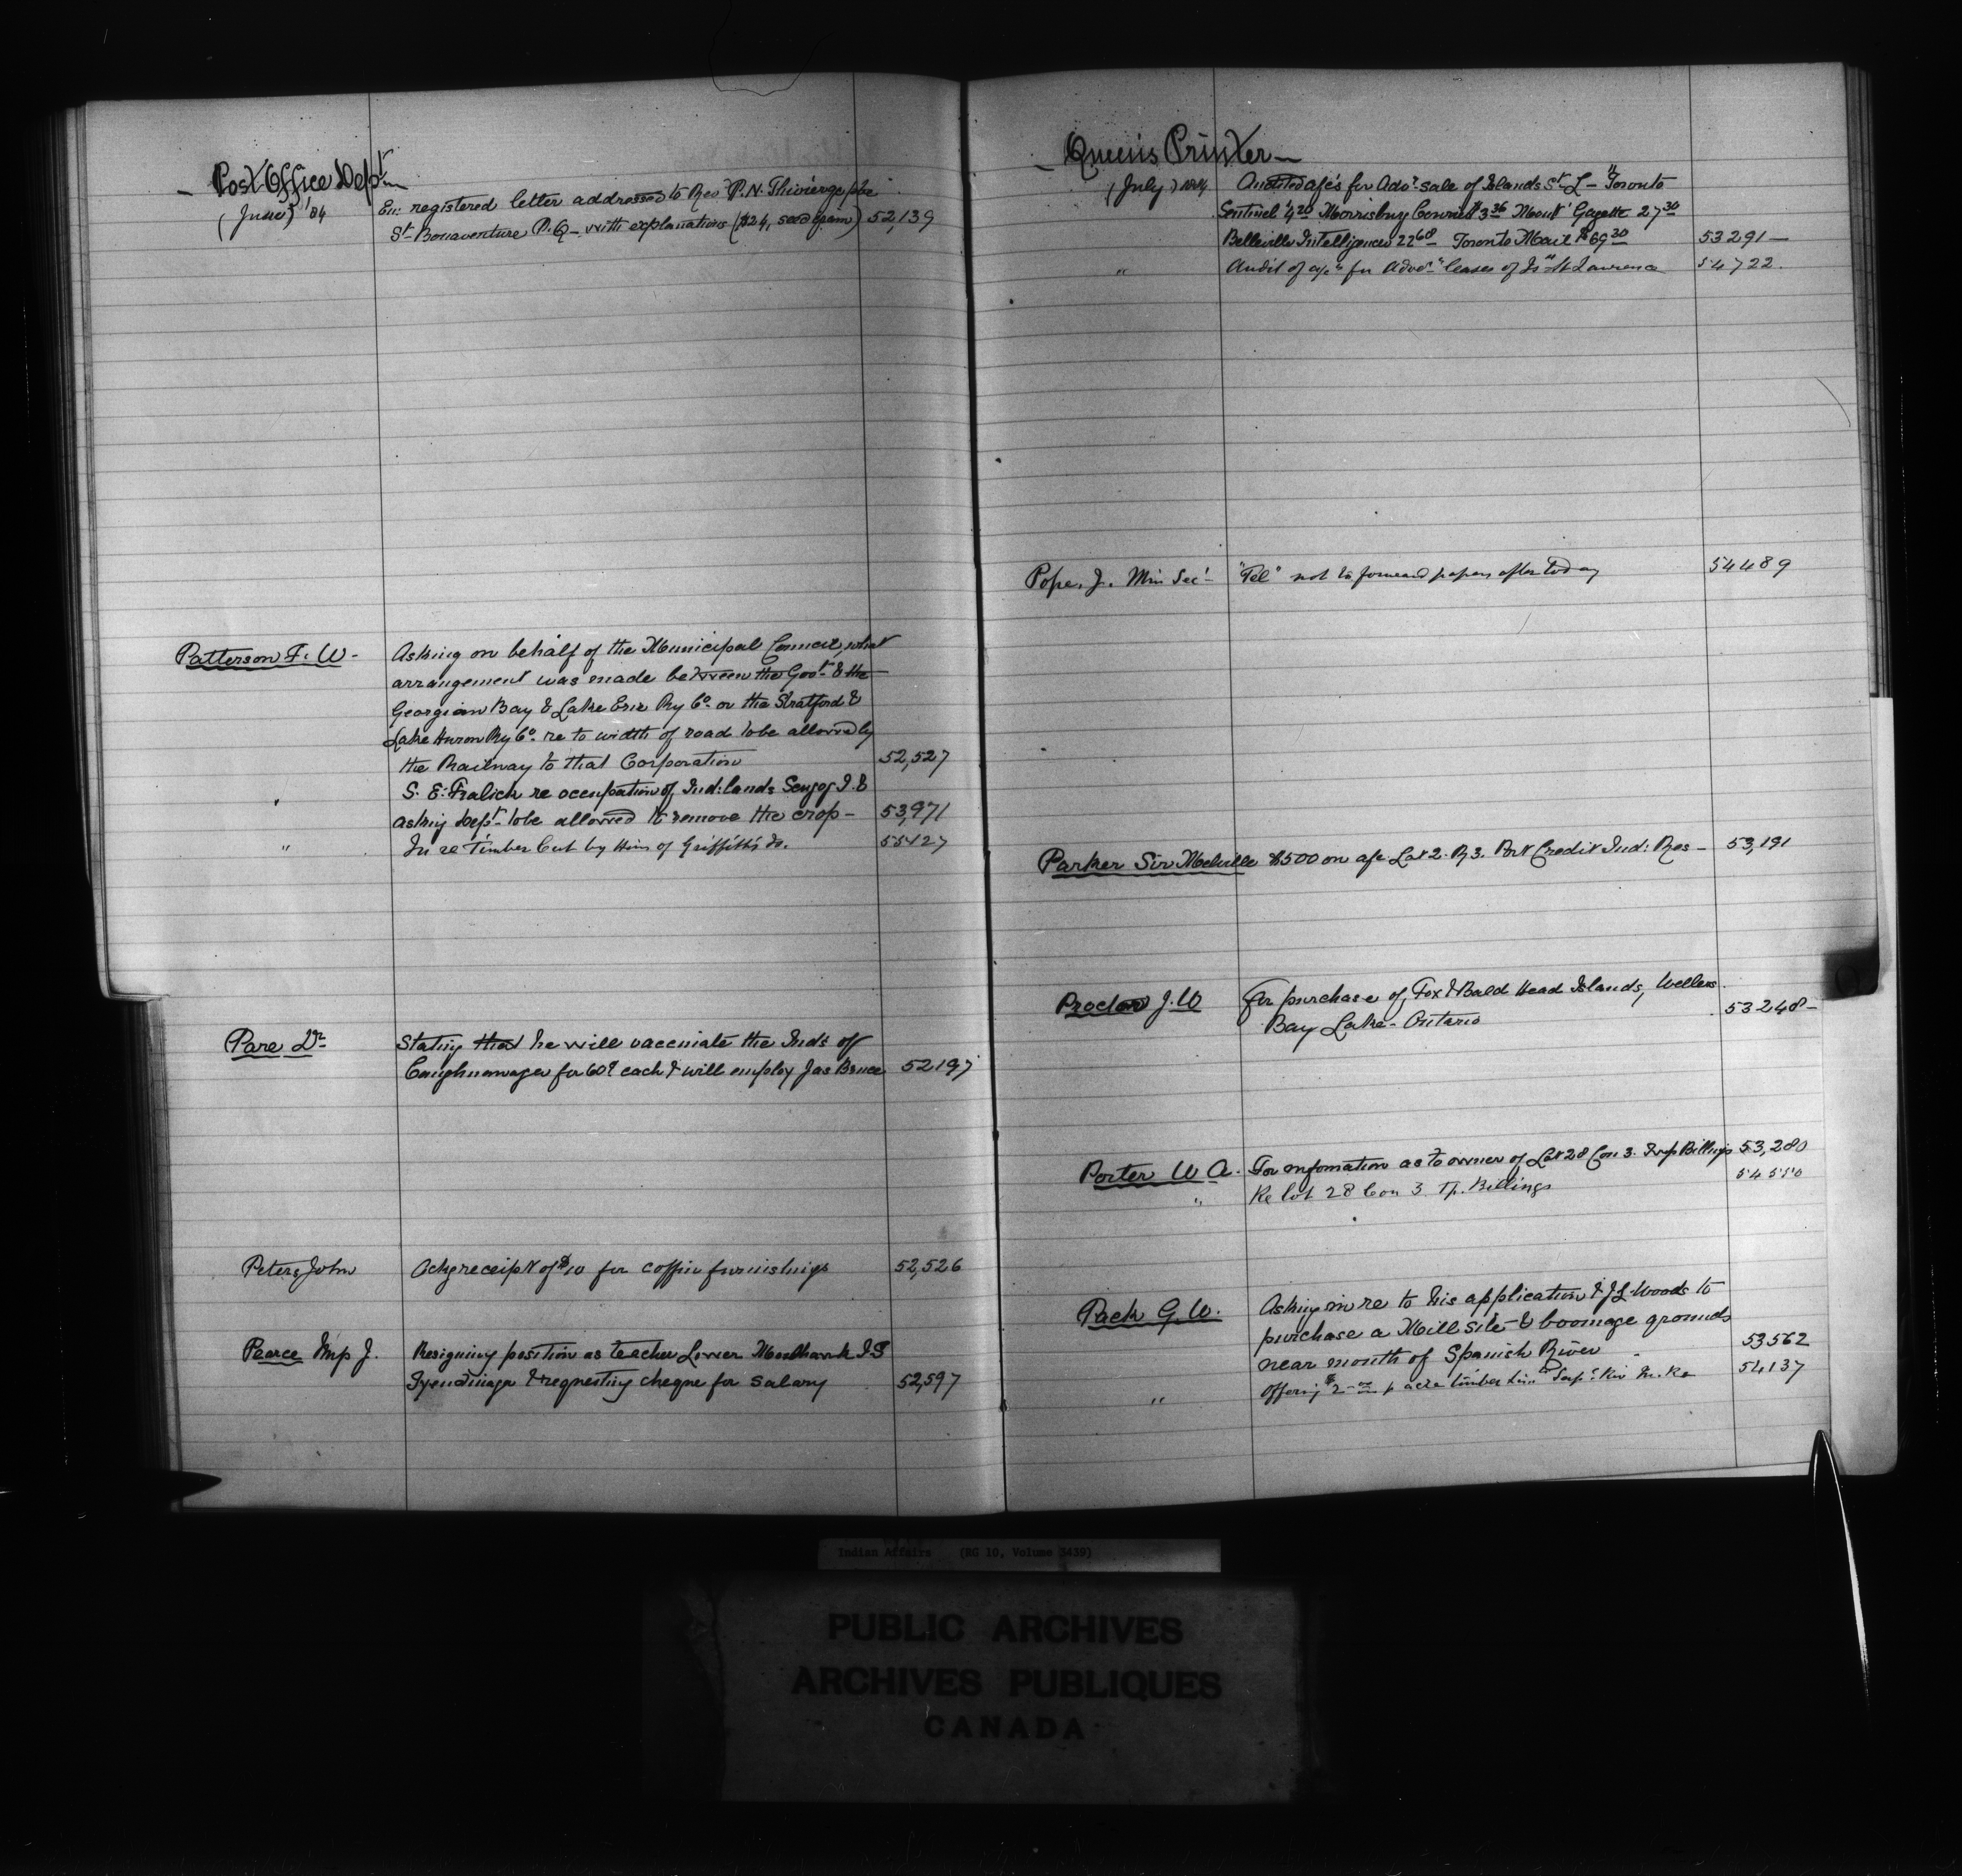 Post Office Dept
(June) '84
En: registered letter addressed to Rev P. N. Thivierge ptre
St Bonaventure P.Q - with explanations ($24, seed grain) 52,139
Patterson F. W - Asking on behalf of the Municipal Council, what
arrangement was made between the Govt & the
Georgian Bay & Lake Erie Ry Co. or the Stratford &
Lake Huron Ry Co. re to width of road to be allowed by
the Railway to that Corporation 52,527
" S. E. Fralick re occupation of Ind: lands Scugog I. &
asking Dept to be allowed to remove the crop - 53,971
" In re Timber Cut by Him of Griffith's Is. 55427
Pare Dr Stating that he will vaccinate the Inds of
Caughnawaga for 60¢ each & will employ Jas Bruce 52197
Peters John Ackg receipt of $10 for coffin furnishings 52,526
Pearce Mrp J. Resigning position as teacher Lower Mohawk I.S
Tyendinaga & requesting cheque for salary 52,597
Queen's Printer
(July) 1884 Audited a/c's for Advr sale of Islands St L - Toronto
Sentinel 4 20 Morrisburg Courier $3 36 Mont' Gazette 27 30
Belleville Intelligencer 22 68 Toronto Mail $69 30 53291 -
" Audit of a/cs for Advr leases of Isds St Lawrence 54722.
Pope, J. Min Sec' "Tel" not to forward papers after today 54489
Parker Sir Melville $500 on a/c Lot 2. R 3. Port Credit Ind: Res - 53,191
Proctor J. W For purchase of, Fox & Bald Head Islands, Wellers
Bay Lake - Ontario 53248 -
Porter W A. For infomation as to owner of Lot 28 Con 3. Twp Billings 53,280
" Re lot 28 Con 3 Tp. Billings 54550
Pack G. W. Asking in re to his application & J L. Woods to
purchase a Mill Site & boomage grounds
near mouth of Spanish River 53562
" Offering $2 - p acre timber 54137
Indian Affairs (RG 10, Volume 3439)
PUBLIC ARCHIVES
ARCHIVES PUBLIQUES
CANADA